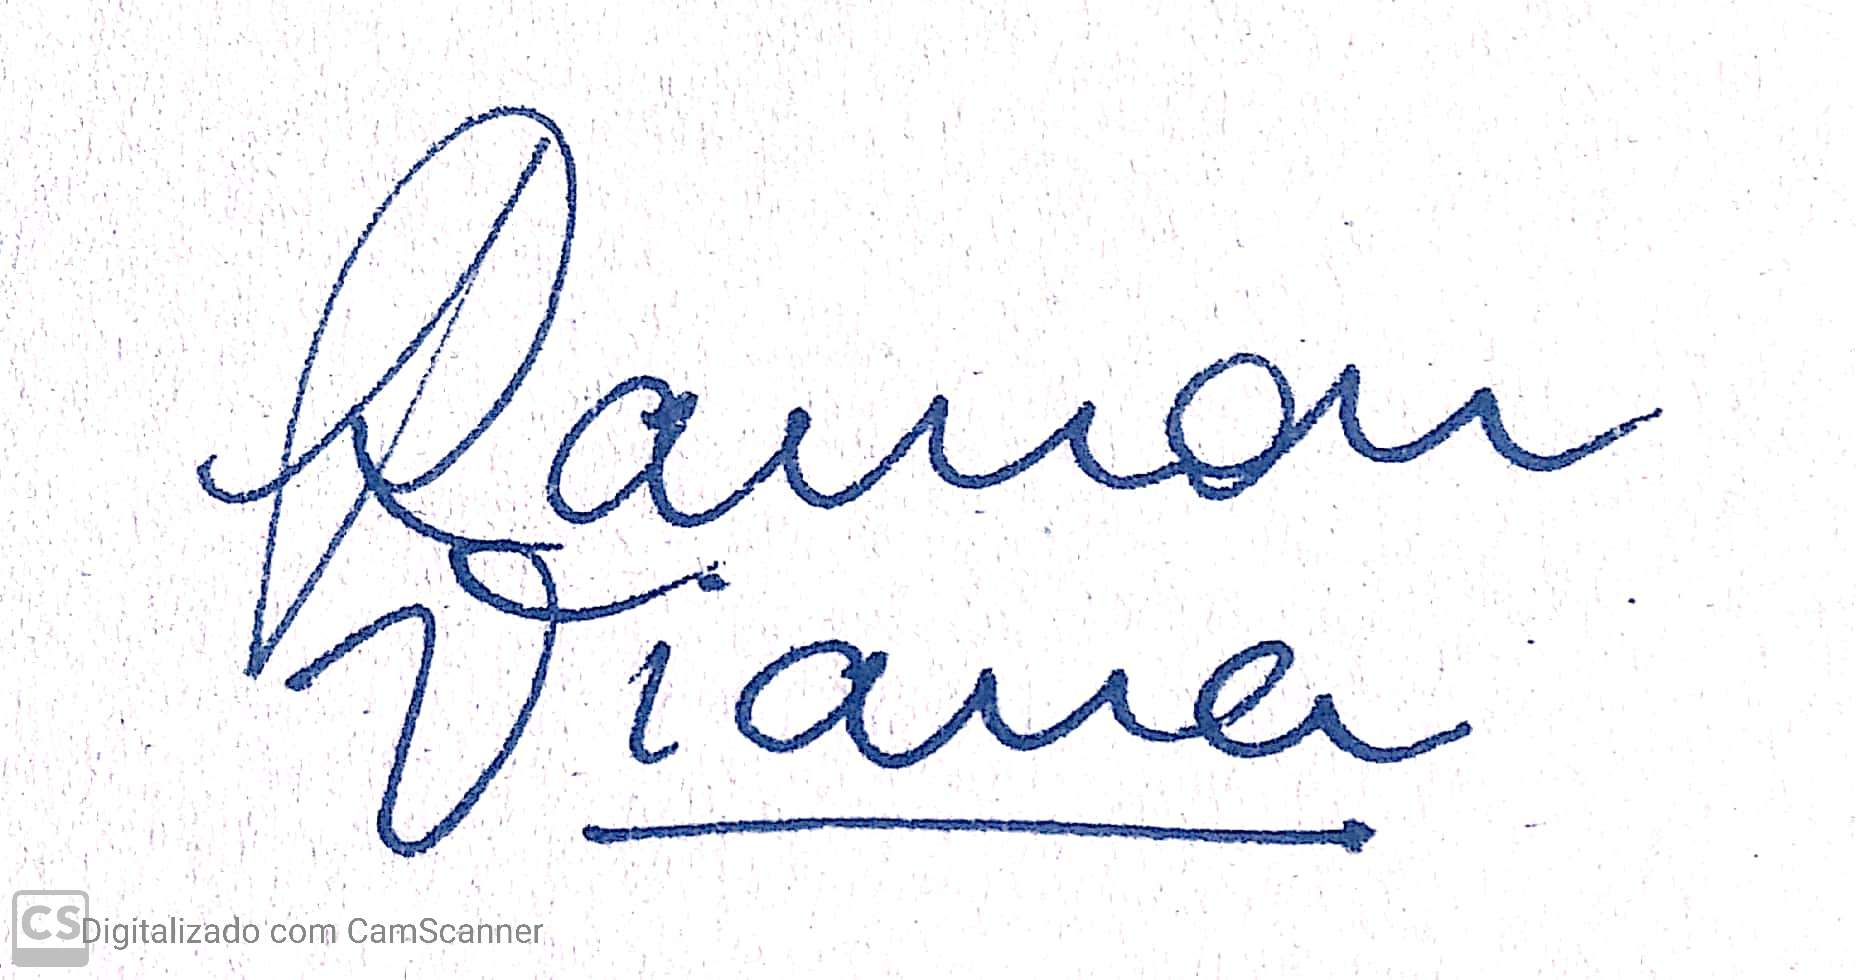 Ramon
Viana
CS Digitalizado com CamScanner